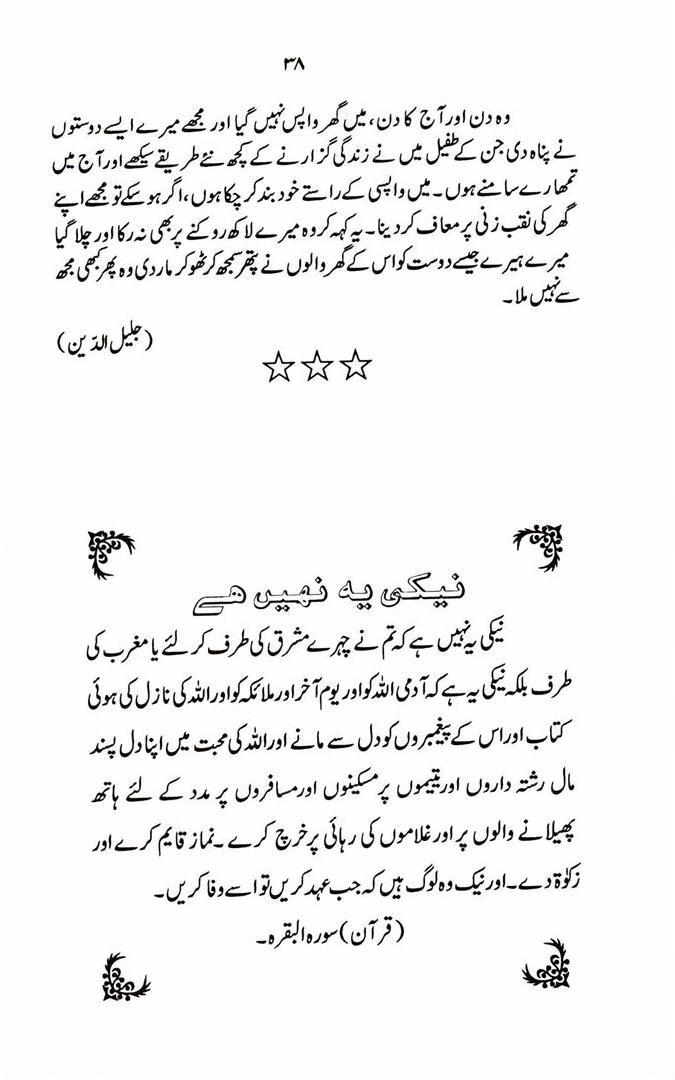 ۳۸
وہ دن اور آج کا دن، میں گھر واپس نہیں گیا اور مجھے میرے ایسے دوستوں
نے پناہ دی جن کے طفیل میں نے زندگی گزارنے کے کچھ نئے طریقے سیکھے اور آج میں
تمھارے سامنے ہوں۔ میں واپسی کے راستے خود بند کر چکا ہوں، اگر ہو سکے تو مجھے اپنے
گھر کی نقب زنی پر معاف کر دینا۔ یہ کہہ کر وہ میرے لاکھ روکنے پر بھی نہ رکا اور چلا گیا
میرے ہیرے جیسے دوست کو اس کے گھر والوں نے پتھر سمجھ کر ٹھوکر مار دی وہ پھر کبھی مجھ
سے نہیں ملا۔
(جلیل الدّین)
☆☆☆
نیکی یہ نہیں ہے
نیکی یہ نہیں ہے کہ تم نے چہرے مشرق کی طرف کر لئے یا مغرب کی
طرف بلکہ نیکی یہ ہے کہ آدمی اللہ کو اور یوم آخر اور ملائکہ کو اور اللہ کی نازل کی ہوئی
کتاب اور اس کے پیغمبروں کو دل سے مانے اور اللہ کی محبت میں اپنا دل پسند
مال رشتہ داروں اور یتیموں پر مسکینوں اور مسافروں پر مدد کے لئے ہاتھ
پھیلانے والوں پر اور غلاموں کی رہائی پر خرچ کرے۔ نماز قایم کرے اور
زکوٰۃ دے۔ اور نیک وہ لوگ ہیں کہ جب عہد کریں تو اسے وفا کریں۔
(قرآن) سورہ البقرہ۔